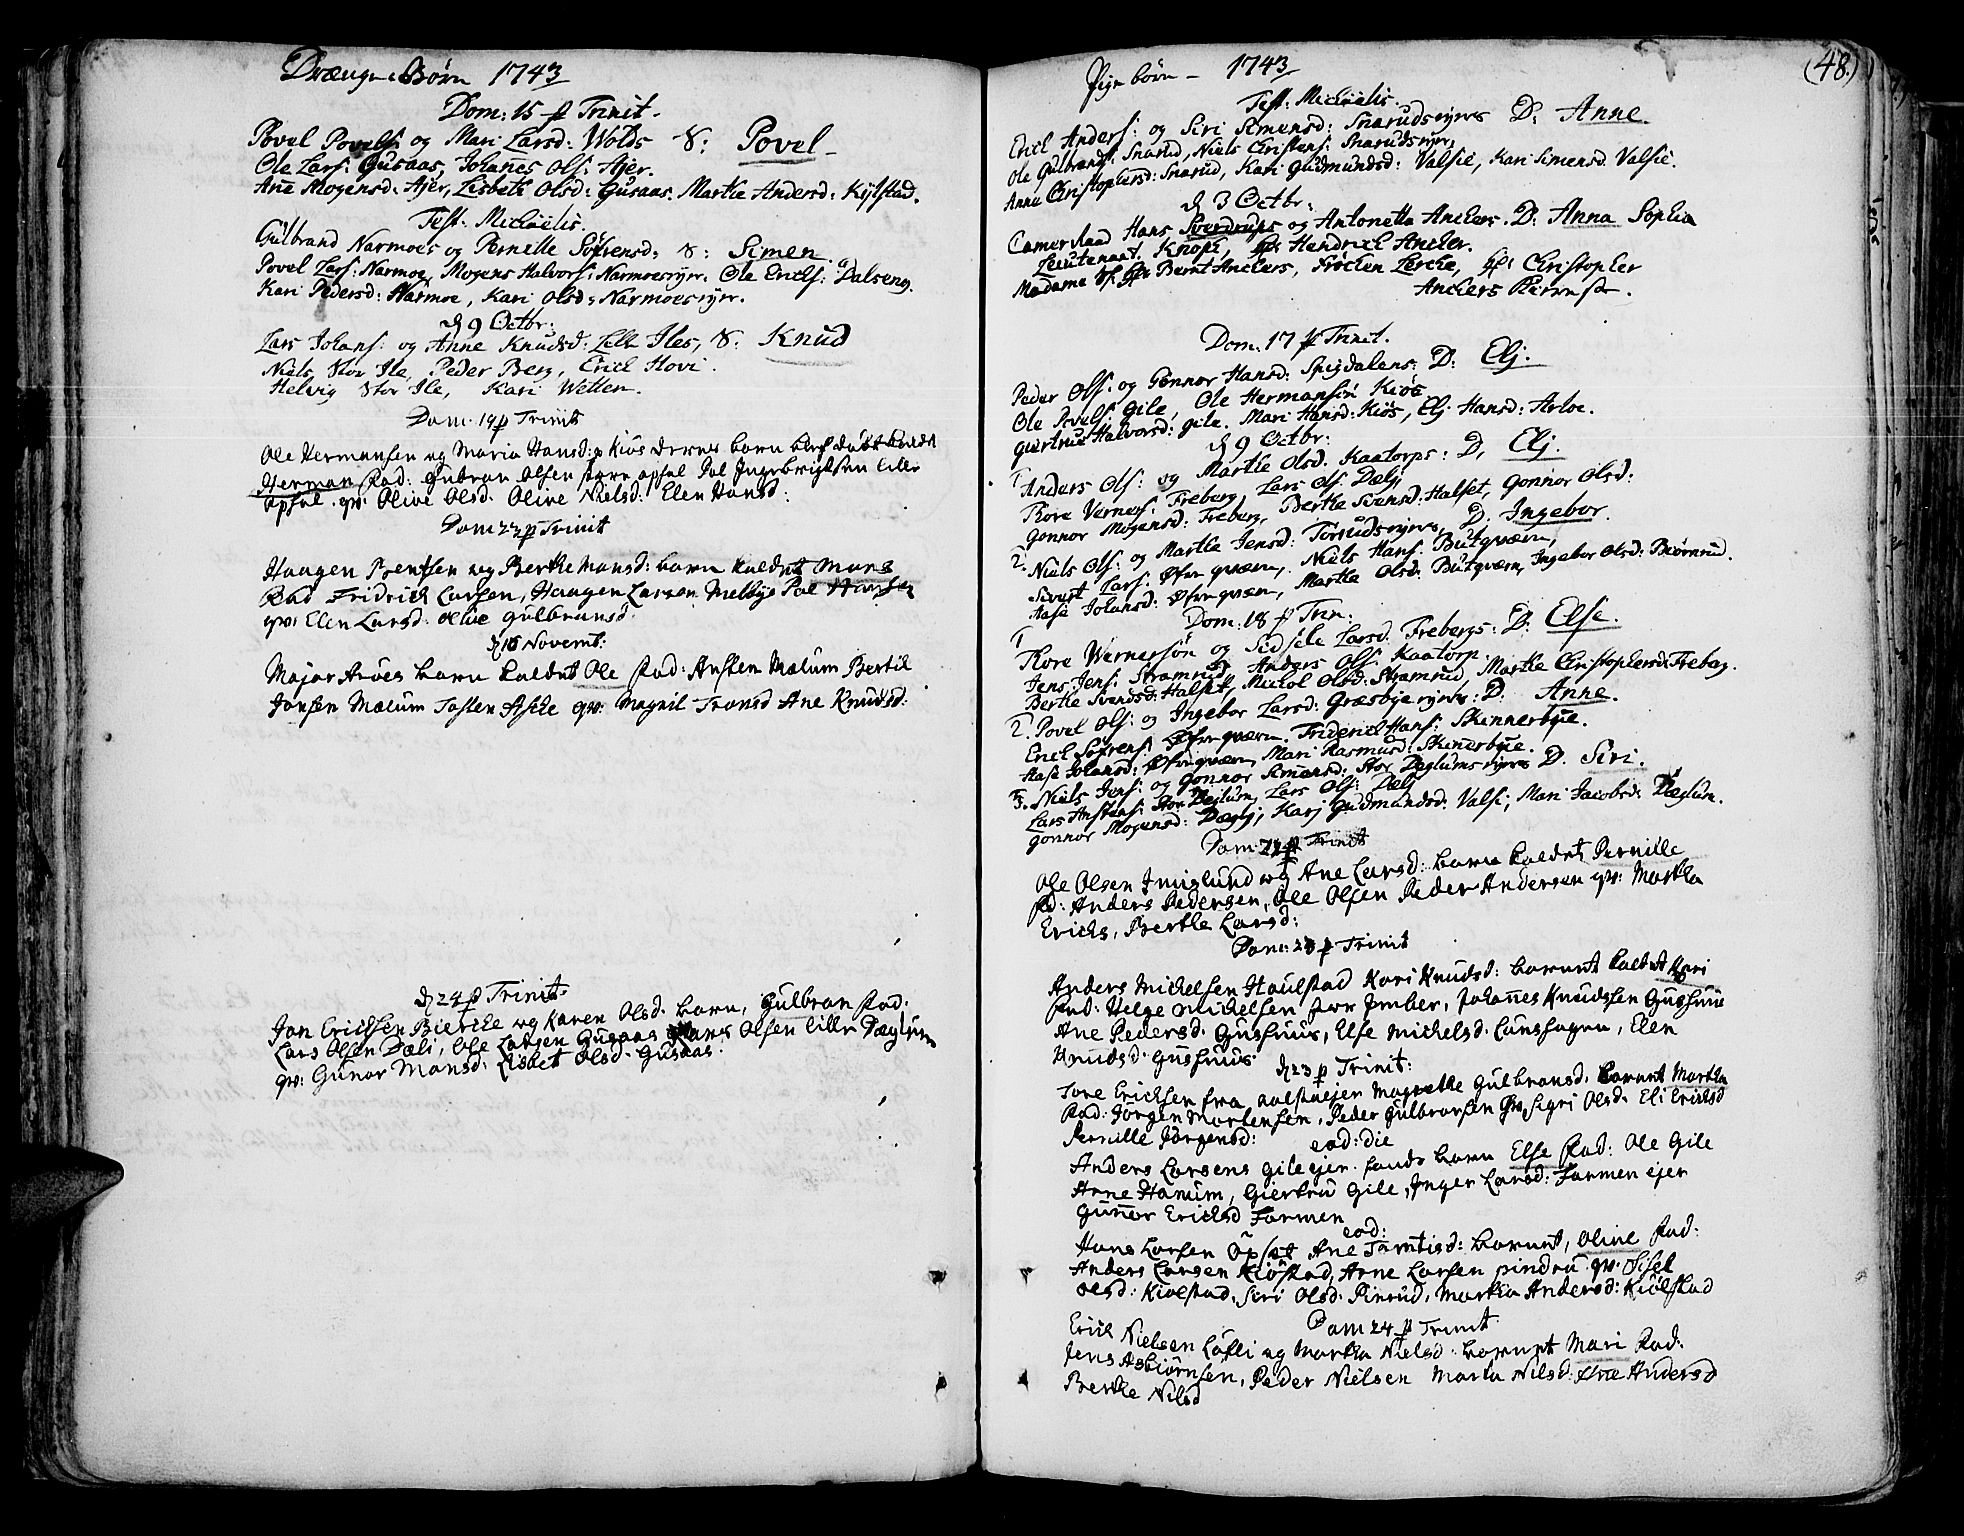 Drænge Børn 1743
Dom: 15 p Trinit.
Povel Povels: og Mari Larsd: Wolds S: Povel
Ole Lars: Gusaas, Johanes Ols: Ajer.
Ane Mogensd: Ajer, Lisbeth Olsd: Gusaas. Marthe Andersd: Kylstad.
Fest: Michaelis.
Gulbrand Narmoes og Pernelle Sørensd: S: Simen
Povel Lars: Narmoe, Mogens Halvors: Narmoesejer. Ole Erichs: Dalseng.
Kari Pedersd: Narmoe, Kari Olsd: Narmoesejer.
d 9 Octbr:
Lars Johans: og Anne Knudsd: Lill Iles, S: Knud
Niels Stor Ile, Peder Berg, Erich Hovi.
Helvig Stor Ile, Kari Wetten.
Dom. 19 p Trinit
Ole Hermansen og Maria Hansd: Kiøs deres barn blef døbt kaldet
Herman fad: Gulbran Olsen store opsal Pol Ingebrigtsen lille
opsal. qv: Olive Olsd: Olive Nielsd: Elen Hansd:
Dom 22 p Trinit
Haagen Prentsen og Berthe Monsd: barn kaldet Mons
fad Fridrich Larsen, Haagen Larsen Melbye Pol Hansen
qv: Elen Larsd: Olive Gulbransd:
d 16 Novemt:
Major Aroes barn kaldet Ole fad: Ansten Mælum Bertil
Jonsen Mælum Tosten qv: Magnil Tronsd Ane Knudsd:
d 24 p Trinit:
Jon Ericksen Biercke og Karen Olsd: barn, Gulbran fad:
Lars Olsen Dæli, Ole Larsen Gusaas Hans Olsen lille Dæglum
qv: Gunor Monsd: Lisbet Olsd: Gusaas:
Pige børn - 1743
(48)
Fest: Michaelis.
Erich Anders: og Siri Simensd: Snarudsejres D: Anne
Ole Gulbrands: Snarud, Niels Christens: Snarudsejer,
Anne Christophersd: Snarud, Kari Gudmundsd: Valsie, Kari Simensd. Valsie.
d 3 Octbr:
Camer Raad Hans Sverdrups og Antonetta Anchers. D: Anna Sophia
Leeutenant Knoph, Hr Hendrich Ancher.
Madame Hr Bernt Anchers, Frøchen Lerche, Hr Christopher
Anchers
Dom: 17 p Trinit.
Peder Ols: og Gonnor Hansd: Spigdalens: D: Elj.
Ole Povels: Gile, Ole Hermansøn Kiøs
Giertrue Halvorsd: gile. Mari Hansd: Kiøs, Elj Hansd: Arloe.
d 9 Octbr:
1 Anders Ols: og Marthe Olsd. Kaatorps: D, Elj.
Thore Verners: Freberg, Lars Ols: Dælj
Gonnor Mogensd: Freberg, Berthe Svensd: Halset, Gonnor Olsd:
2. Niels Ols: og Marthe Jensd: Torsudsejres, D: Ingebor.
Sivert Lars: Øfre qværn, Niels Hans: Butqværn,
Aase Johansd: Øfre qværn, Marthe Olsd: Butqværn, Ingebor Olsd: Biørnrud.
Dom: 18 p Trin:
1 Thore Wernersøn og Sidsele Larsd. Frebergs: D: Else.
Jens Jens: Stramrud, Anders Ols: Kaatorp.
Berthe Svendsd: Halset, Michol Olsd: Stramrud, Marthe Christophersd: Freberg.
2. Povel Ols: og Ingebor Larsd: Græsbye ejres: D: Anne.
Erich Sørens: Øfre qværn, Friderich Hans: Skinnerbye.
Aase Johansd: Øfre qværn, Mari Rasmusd: Skinerbye.
3. Niels Jens: og Gonnor Simensd: Stor Dæglumsejres D. Siri.
Lars Anstens: Stor Dæglum, Lars Ols: Dælj
gonnor Mogensd: Dæglj, Karj Gudmundsd: Valsi, Mari Jacobsd: Dæglum.
Dom: 22 p Trinit
Ole Olsen Imiglund og Ane Larsd: barn kaldet Pernille
fad: Anders Pedersen, Ole Olsen Peder Andersen qv: Martha
Erichs, Berthe Larsd:
Dom: 23 p Trinit
Anders Michelsen Haulstad Kari Knudsd: barnet kaldet Kari
fad: Helge Michelsen Johannes Knudssen Gushuus
Ane Pedersd: Gushuus, Else Michelsd: Elen
Knudsd: Gushuus
d 23 p Trinit:
Tore Ericksen fra Magrethe Gulbransd: barnet Martha
fad: Jørgen Mortensen, Peder Gulbransen qv: Sigri Olsd: Eli Ericksd
Pernille Jørgensd:
eod: die
Anders Larsens Gileejer barn Else fad: Ole Gile
Arne Hanum, Giertru Gile, Inger Larsd: Formen ejer
Gunnor Ericksd Formen
eod:
Hans Larsen Opset Ane barnet, Oline fad:
Anders Larsen Kiølstad, Arne Larsen pindru. qv: Sisel
Olsd: Kiølstad, Siri Olsd: Pinrud, Martha Andersd: Kiølstad
Dom 24 p Trinit
Erick Nielsen Løfli og Martha Nielsd: barnet Mari fad:
Jens Asbiørnsen, Peder Nielsen Marta Nilsd: Ane Andersd
Berthe Nilsd